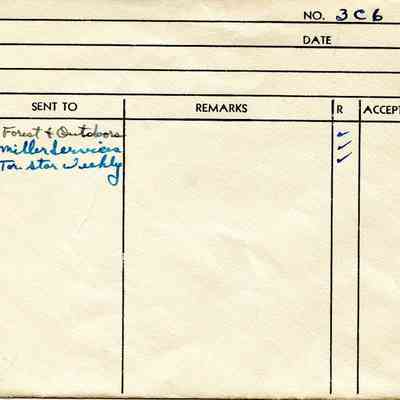 NO. 3C6
DATE
SENT TO REMARKS R ACCEPT
Forest & Outdoors ✓
Miller Services ✓
Tor. Star Weekly ✓